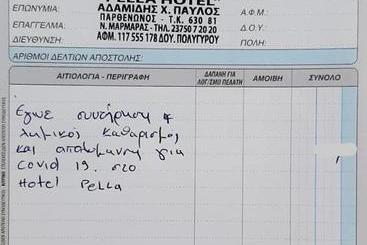 "PELLA HOTEL"
ΕΠΩΝΥΜΙΑ: ΑΔΑΜΙΔΗΣ Χ. ΠΑΥΛΟΣ Α.Φ.Μ.:
ΠΑΡΘΕΝΩΝΟΣ - Τ.Κ. 630 81
ΕΠΑΓΓΕΛΜΑ: Ν. ΜΑΡΜΑΡΑΣ - ΤΗΛ. 23750 72020 Δ.Ο.Υ.
ΔΙΕΥΘΥΝΣΗ: ΑΦΜ. 117 555 178 ΔΟΥ. ΠΟΛΥΓΥΡΟΥ ΠΟΛΗ:
ΑΡΙΘΜΟΙ ΔΕΛΤΙΩΝ ΑΠΟΣΤΟΛΗΣ:
ΑΙΤΙΟΛΟΓΙΑ - ΠΕΡΙΓΡΑΦΗ ΔΑΠΑΝΗ ΓΙΑ ΛΟΓ/ΣΜΟ ΠΕΛΑΤΗ ΑΜΟΙΒΗ ΣΥΝΟΛΟ
Εγινε συντήρηση
χημικός καθαρισμός
και απολυμανση για
Covid 19. στο
Hotel Pella